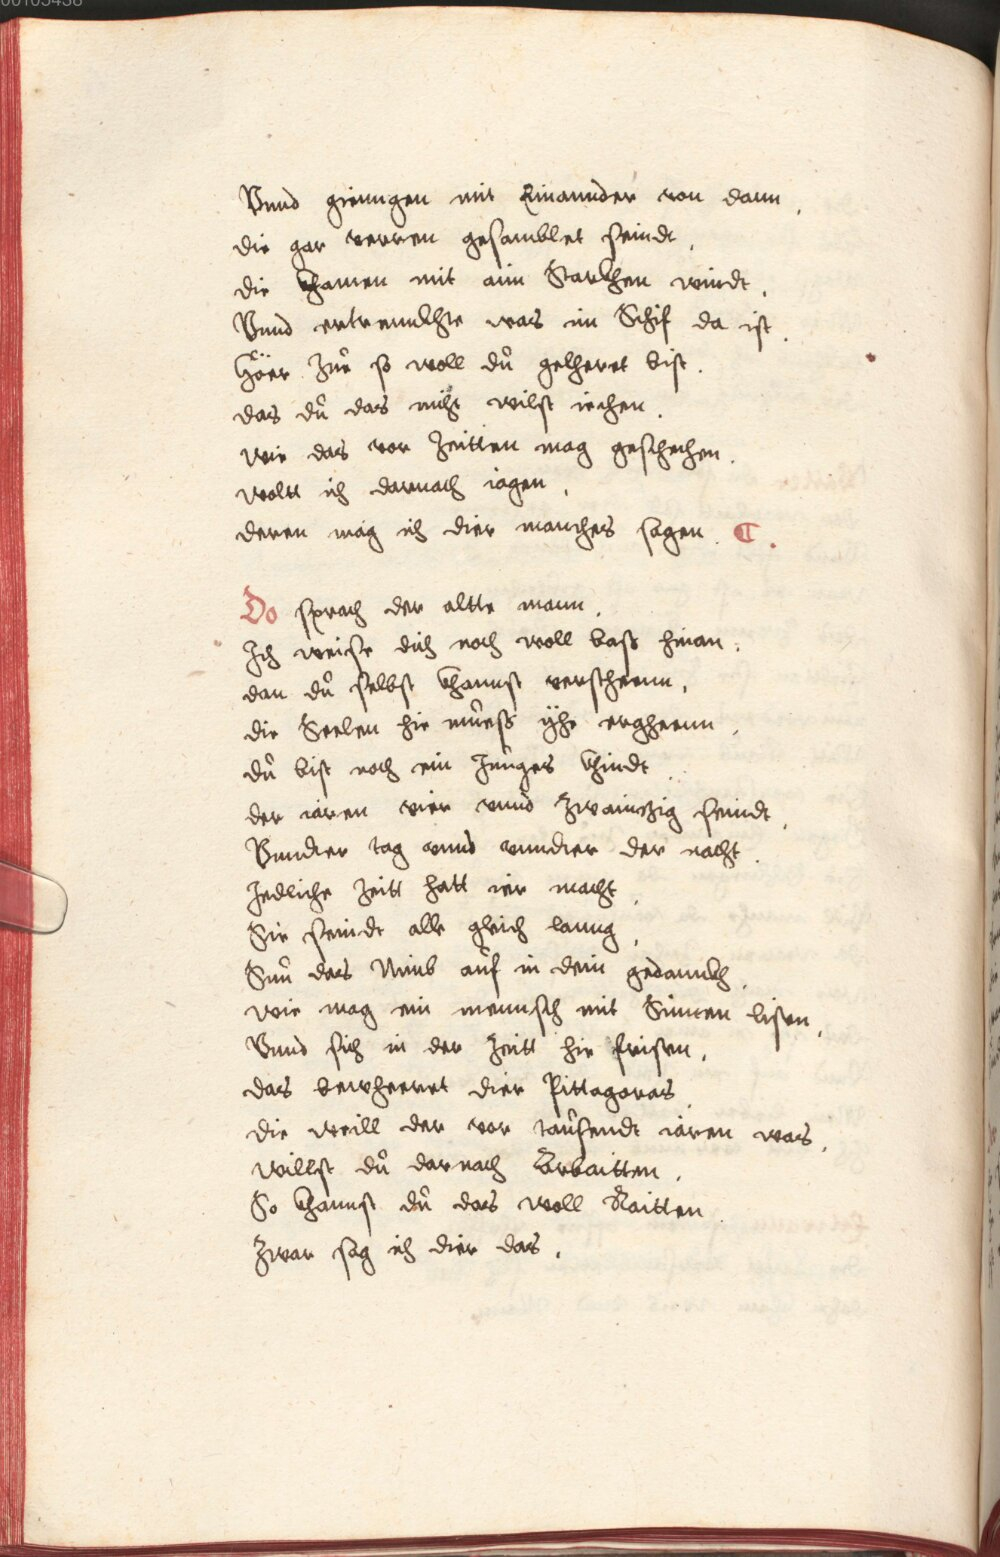 00105458
Vnnd giengen mit Einannder von dann,
die gar verren gesamblet seindt,
die khamen mit aim Starkhen windt,
Vnnd ertrennkhte was im Schif da ist.
Höer Zue so woll dů gelheret bist.
das dů das nicht wilst iechen.
wie das vor Zeitten mag geschechen.
woltt ich darnach iagen,
deren mag ich dier manches sagen. C.
Do sprach der altte mann,
Ich weise dich noch woll bass hinan:
dan dů selbst khannst verscheenn,
die Seelen hie můess ÿhe ergheenn,
dů bist noch ein Junges khindt
der iaren vier vnnd Zwainzig seindt,
Vnndter tag vnnd vnndter der nacht.
Jedliche Zeitt hatt ier macht,
Sie seindt alle gleich lanng,
Nun das Nimb aůf in dein gedannkh,
wie mag ein mennsch mit Sinnen lisen,
Vnnd sich in der Zeitt hie frisen,
das bewheeret dier Pittagoras,
die weill der vor taůsendt iaren was,
willst dů darnach Arbaitten,
So khannst dů das woll Raitten
Zwar sag ich dier das,